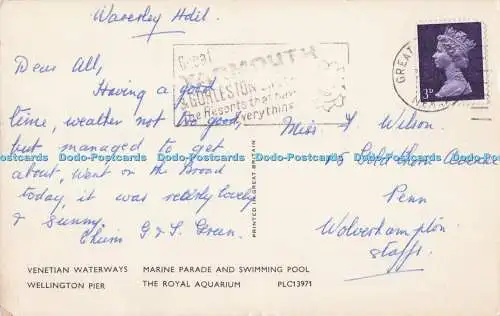 Waverley Hotel.
Dear All,
Having a good
time, weather not too good,
but managed to get
about, went on the Broad
today, it was really lovely
& sunny.
G & S. Green.
Great
YARMOUTH
& GORLESTON
The Resorts that have
Everything
GREAT
3D
Miss Wilson
Avenue
Penn
Wolverhampton
Staffs.
PRINTED IN GREAT BRITAIN
Dodo-Postcards Dodo-Postcards Dodo-Postcards Dodo-Postcards Dodo-Postcards
VENETIAN WATERWAYS MARINE PARADE AND SWIMMING POOL
WELLINGTON PIER THE ROYAL AQUARIUM PLC13971